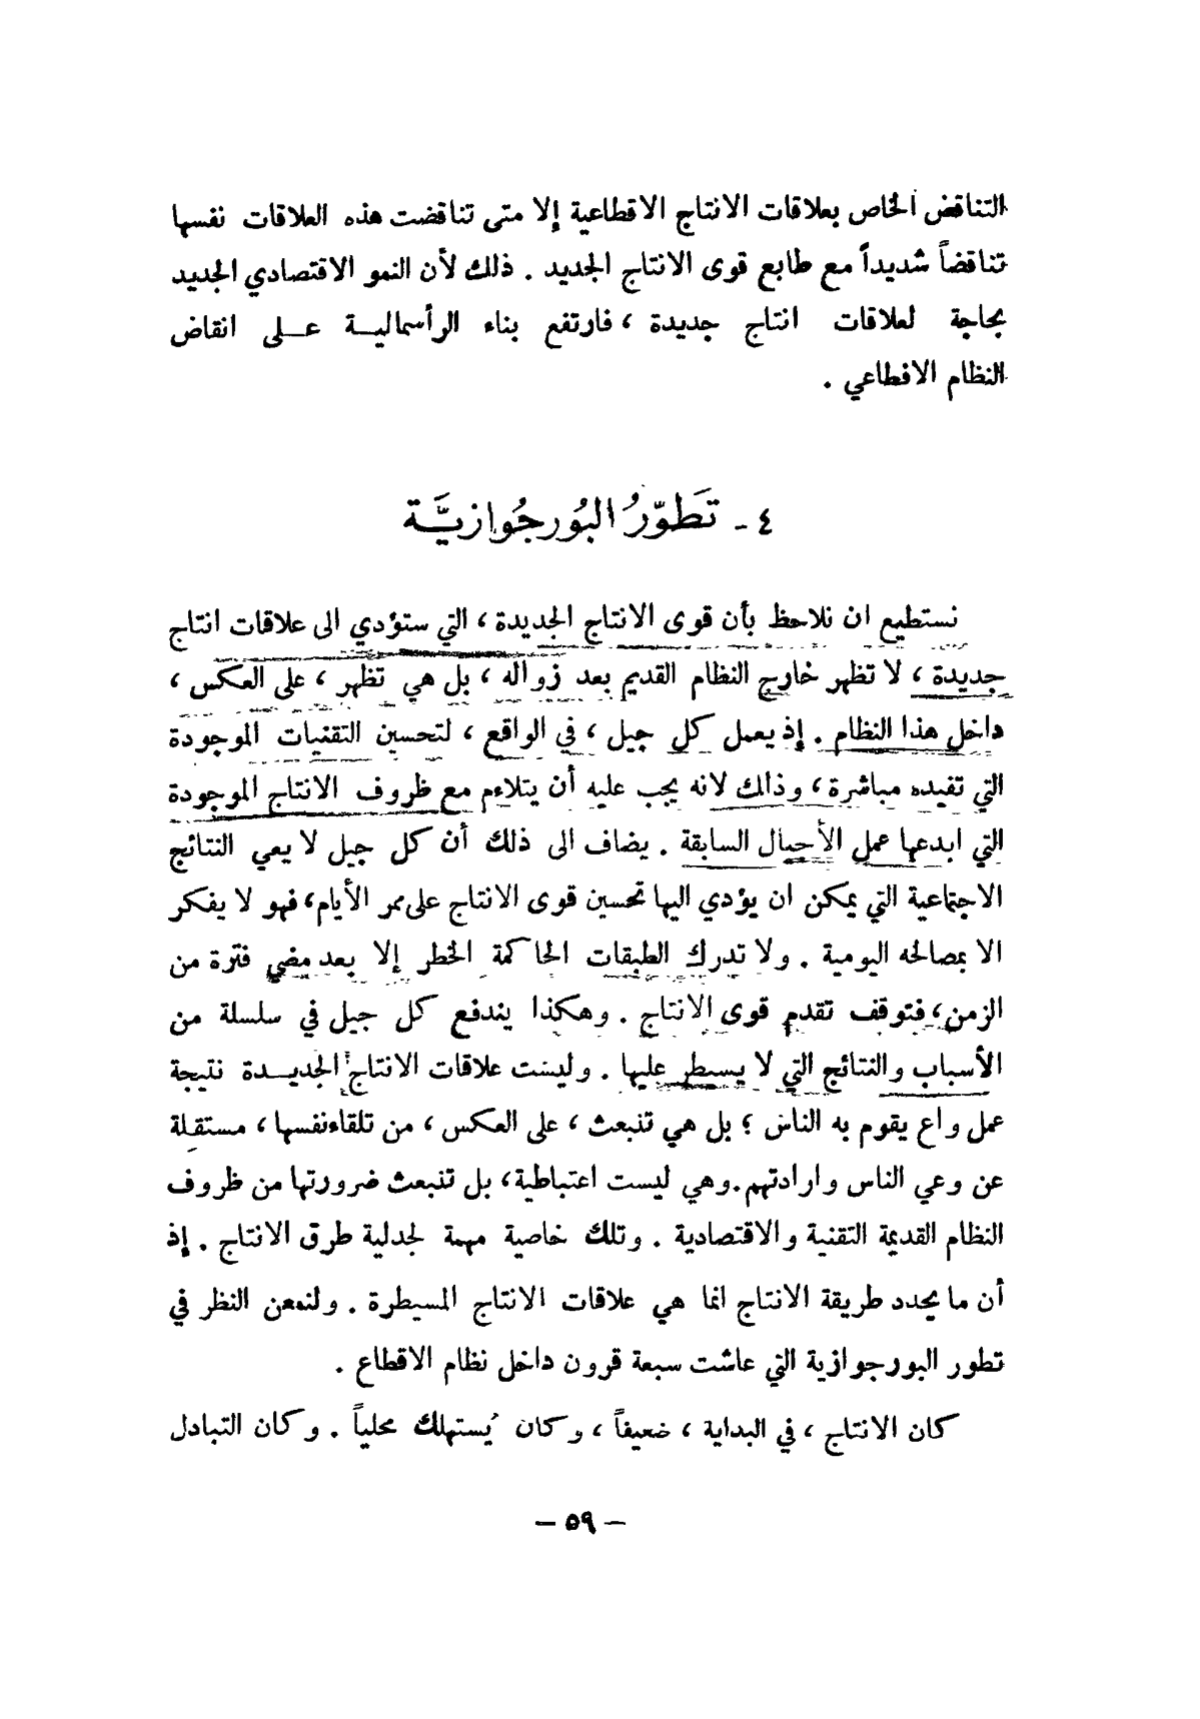 التناقض الخاص بعلاقات الانتاج الاقطاعية إلا متى تناقضت هذه العلاقات نفسها
تناقضاً شديداً مع طابع قوى الانتاج الجديد . ذلك لأن النمو الاقتصادي الجديد
بحاجة لعلاقات انتاج جديدة ، فارتفع بناء الرأسمالية على انقاض
النظام الاقطاعي .
٤ - تَطوّرُ البُورجُوازيَّة
نستطيع ان نلاحظ بأن قوى الانتاج الجديدة ، التي ستؤدي الى علاقات انتاج
جديدة ، لا تظهر خارج النظام القديم بعد زواله ، بل هي تظهر ، على العكس ،
داخل هذا النظام . إذ يعمل كل جيل ، في الواقع ، لتحسين التقنيات الموجودة
التي تفيده مباشرة ، وذلك لانه يجب عليه أن يتلاءم مع ظروف الانتاج الموجودة
التي ابدعها عمل الأجيال السابقة . يضاف الى ذلك أن كل جيل لا يعي النتائج
الاجتماعية التي يمكن ان يؤدي اليها تحسين قوى الانتاج على ممر الأيام ، فهو لا يفكر
الا بمصالحه اليومية . ولا تدرك الطبقات الحاكمة الخطر إلا بعد مضي فترة من
الزمن ، فتوقف تقدم قوى الانتاج . وهكذا يندفع كل جيل في سلسلة من
الأسباب والنتائج التي لا يسيطر عليها . وليست علاقات الانتاج الجديدة نتيجة
عمل واع يقوم به الناس ؛ بل هي تنبعث ، على العكس ، من تلقاء نفسها ، مستقلة
عن وعي الناس وارادتهم . وهي ليست اعتباطية ، بل تنبعث ضرورتها من ظروف
النظام القديمة التقنية والاقتصادية . وتلك خاصية مهمة لجدلية طرق الانتاج . إذ
أن ما يحدد طريقة الانتاج انما هي علاقات الانتاج المسيطرة . ولنمعن النظر في
تطور البورجوازية التي عاشت سبعة قرون داخل نظام الاقطاع .
كان الانتاج ، في البداية ، ضعيفاً ، وكان يُستهلك محلياً . وكان التبادل
— ٥٩ —